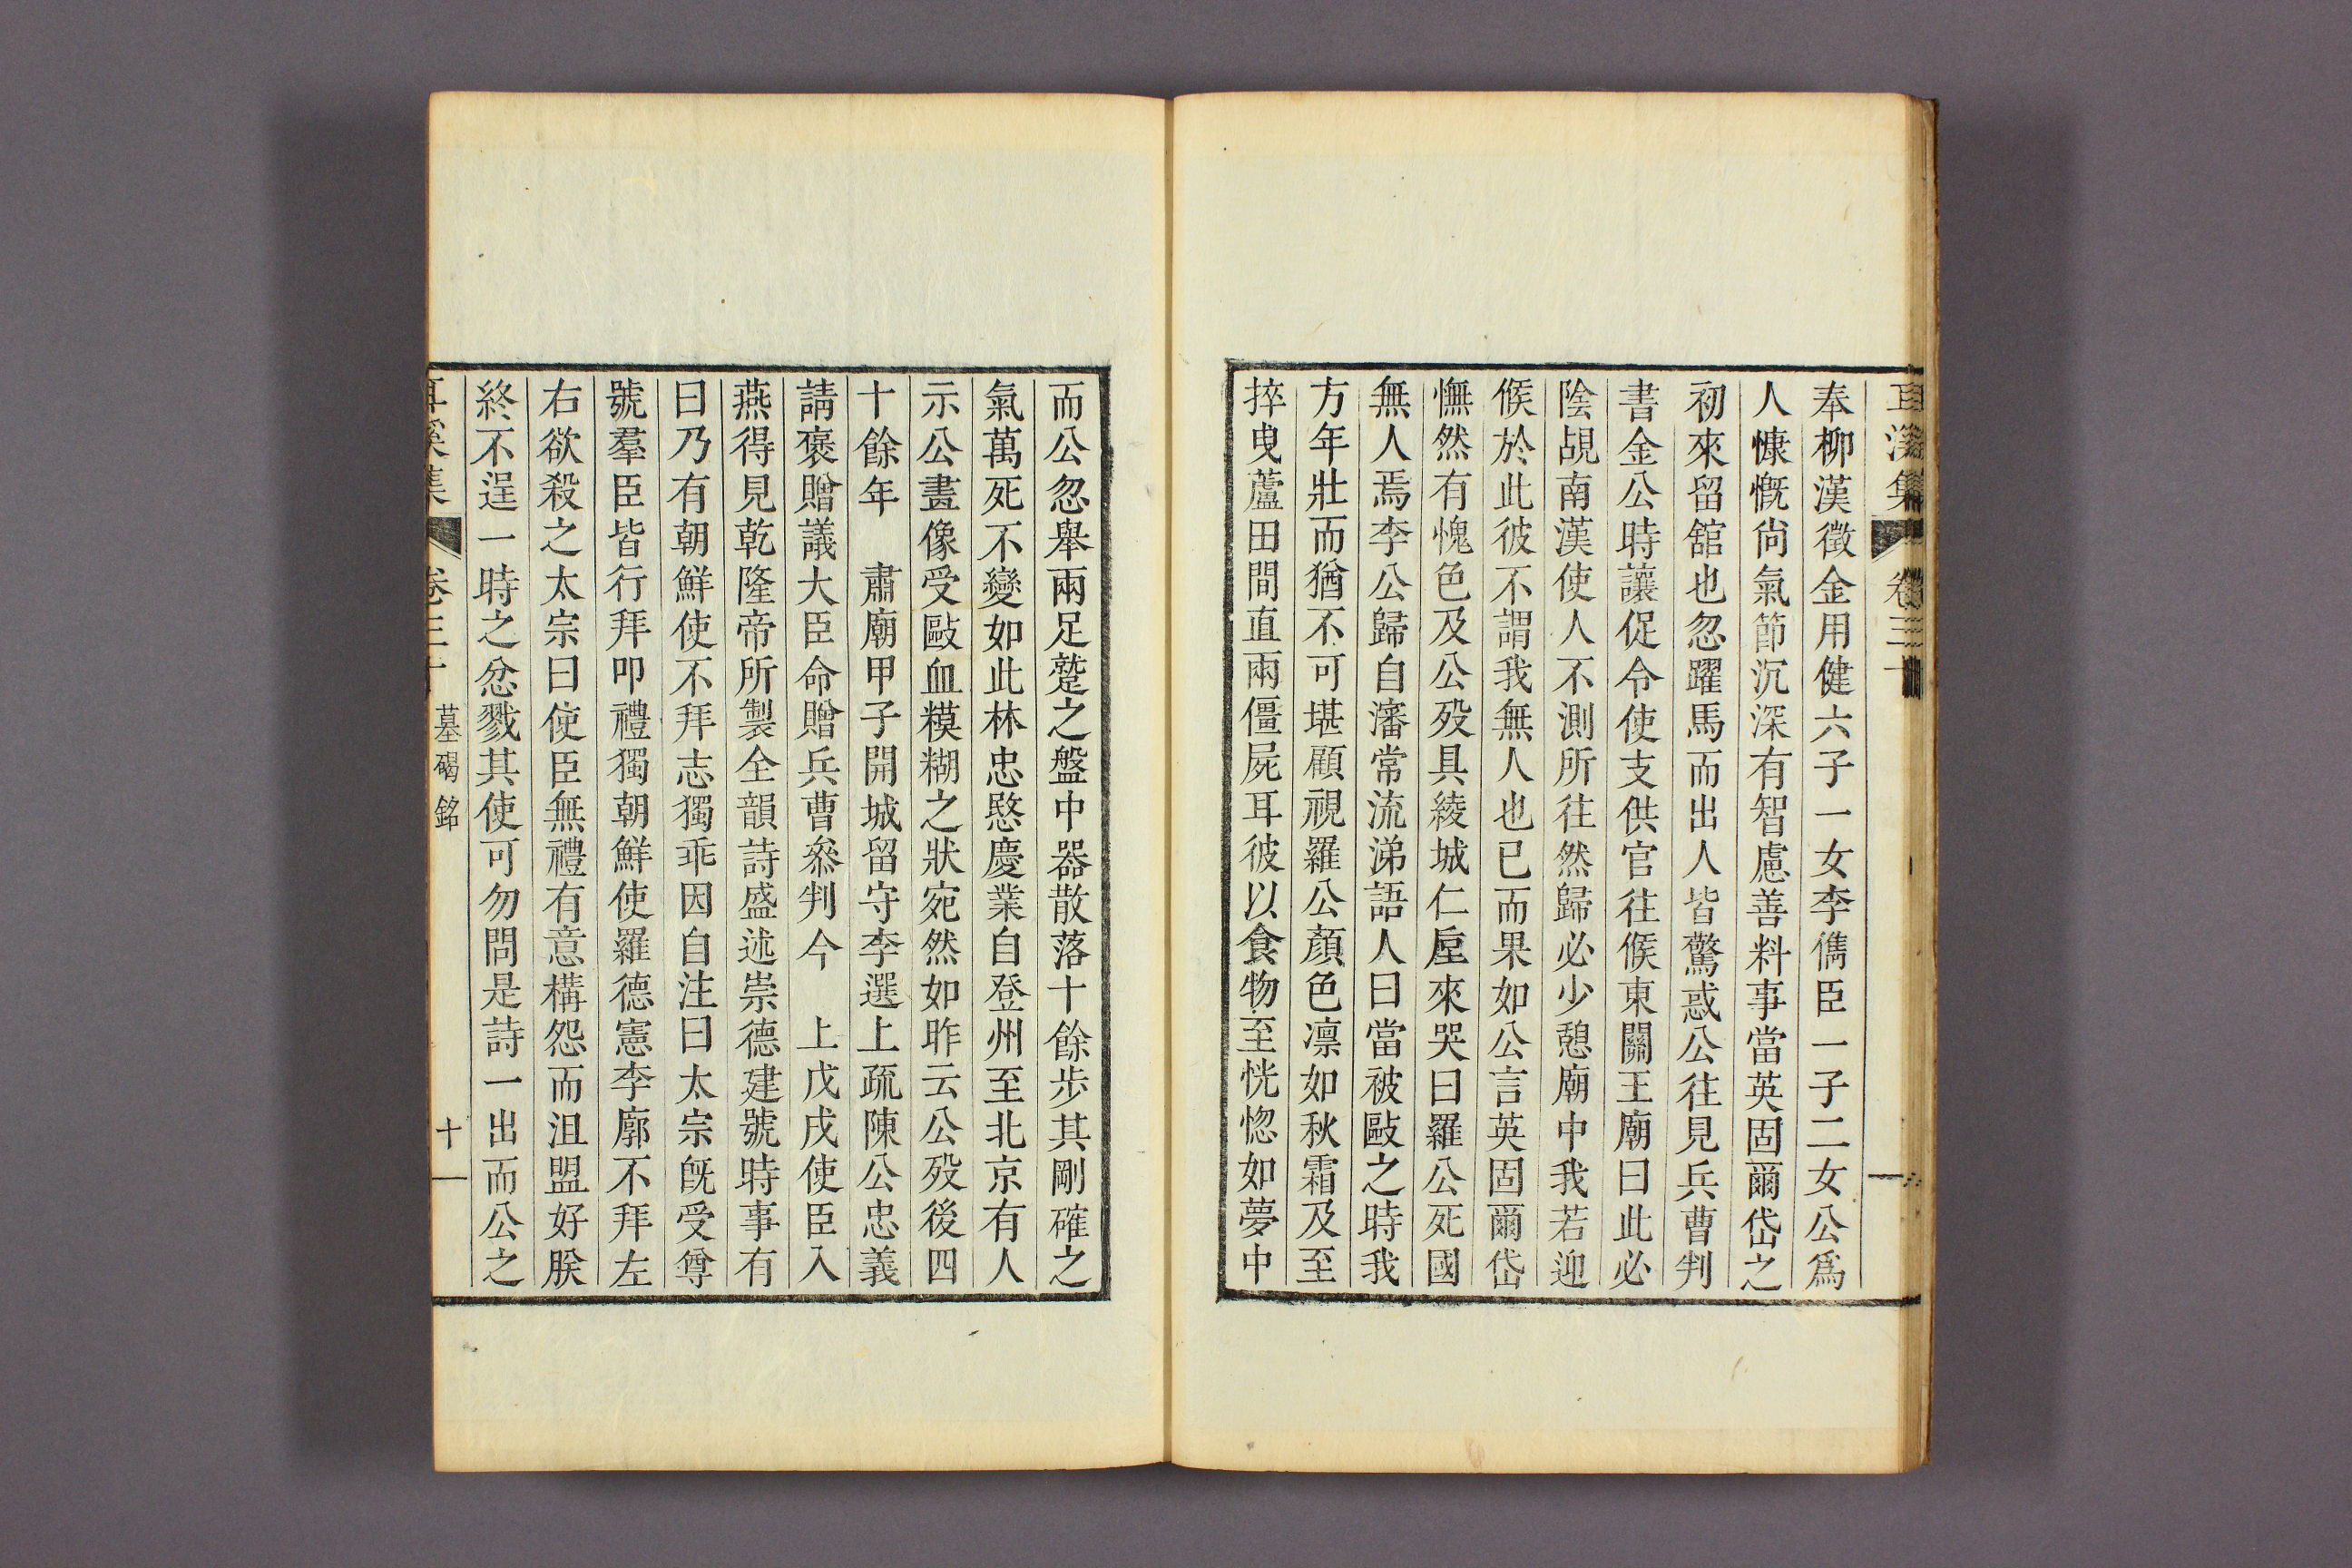 耳溪集 卷三十
奉柳漢徵金用健六子一女李儁臣一子二女公爲
人慷慨尙氣節沉深有智慮善料事當英固爾岱之
初來留舘也忽躍馬而出人皆驚惑公往見兵曹判
書金公時讓促令使支供官往候東關王廟曰此必
陰覘南漢使人不測所往然歸必少憩廟中我若迎
候於此彼不謂我無人也已而果如公言英固爾岱
憮然有愧色及公歿具綾城仁垕來哭曰羅公死國
無人焉李公歸自瀋常流涕語人曰當被毆之時我
方年壯而猶不可堪顧視羅公顏色凛如秋霜及至
捽曳蘆田間直兩僵屍耳彼以食物至恍惚如夢中
而公忽舉兩足蹵之盤中器散落十餘步其剛確之
氣萬死不變如此林忠愍慶業自登州至北京有人
示公畫像受毆血糢糊之狀宛然如昨云公歿後四
十餘年 肅廟甲子開城留守李選上疏陳公忠義
請褒贈議大臣命贈兵曹叅判今 上戊戌使臣入
燕得見乾隆帝所製全韻詩盛述崇德建號時事有
曰乃有朝鮮使不拜志獨乖因自注曰太宗旣受尊
號羣臣皆行拜叩禮獨朝鮮使羅德憲李廓不拜左
右欲殺之太宗曰使臣無禮有意構怨而沮盟好朕
終不逞一時之忿戮其使可勿問是詩一出而公之
耳溪集 卷三十 墓碣銘 十一